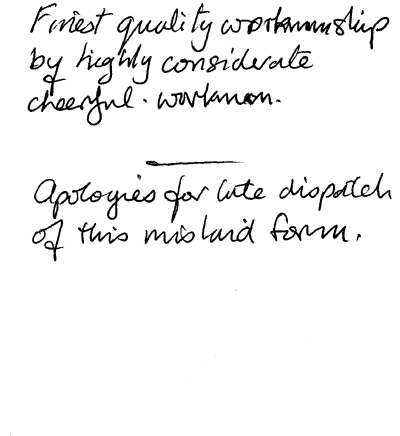 Finest quality workmanship
by highly considerate
cheerful. workman.
Apologies for late dispatch
of this mislaid form.